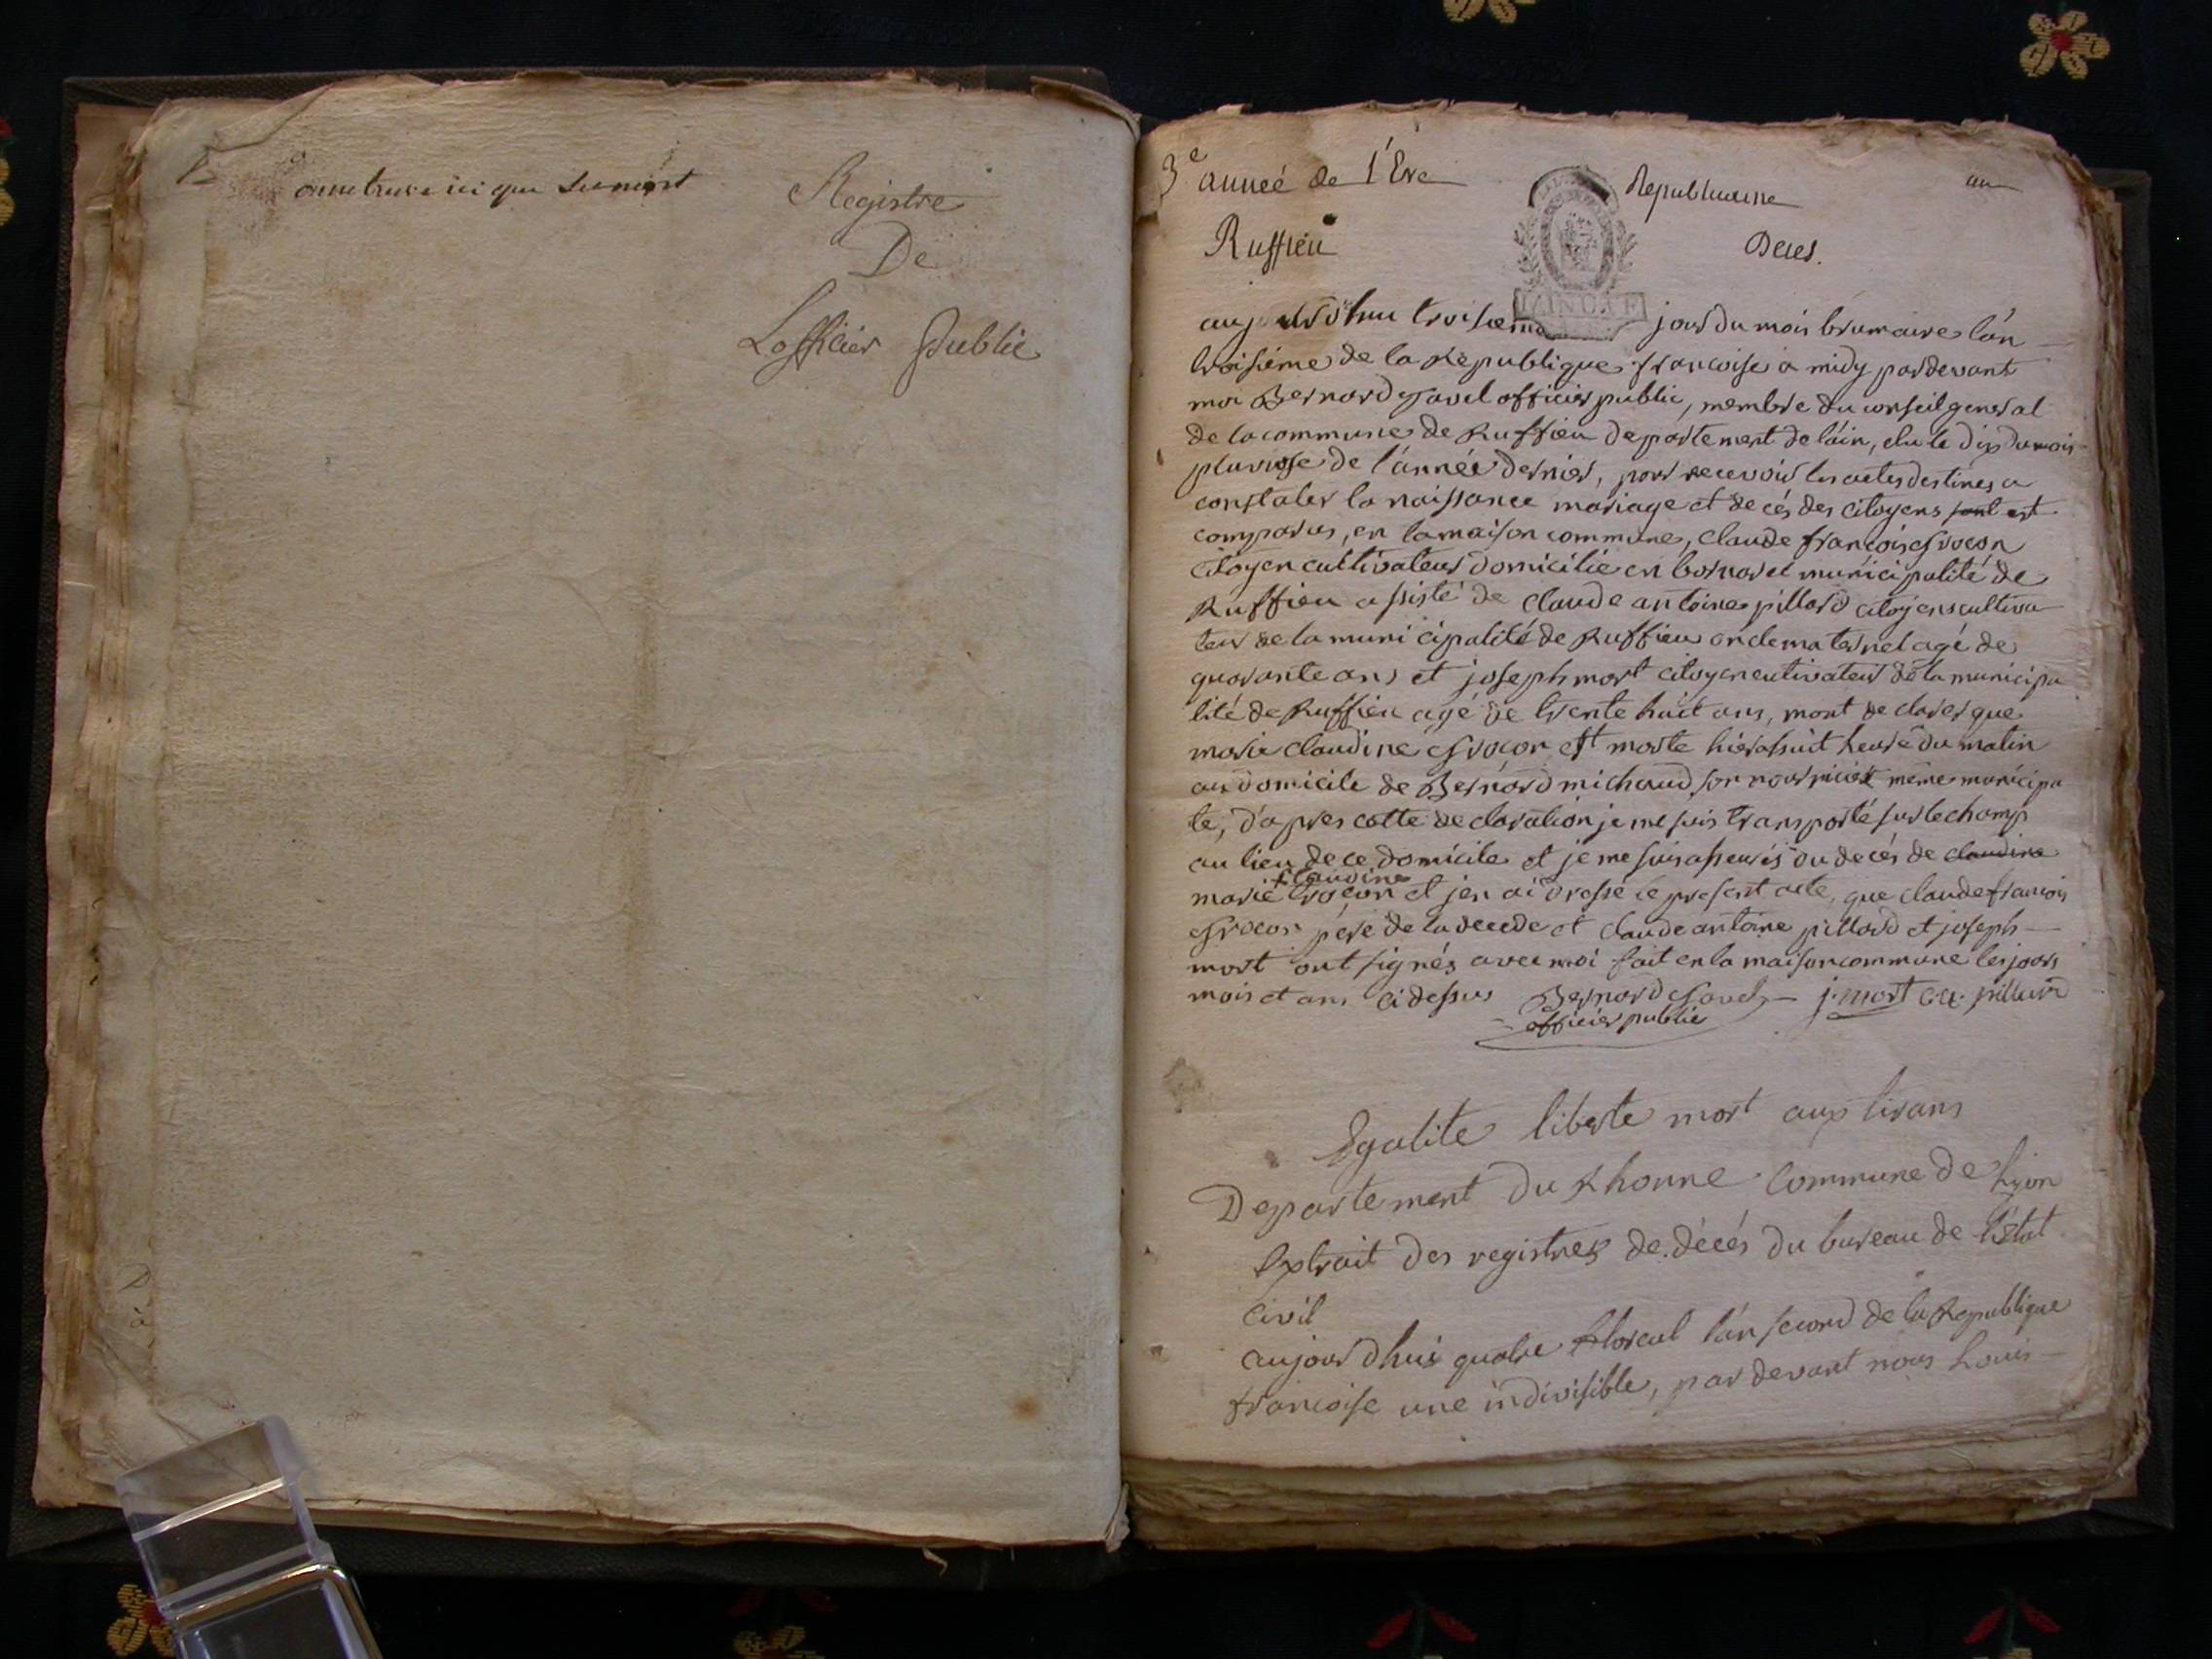 on ne trouve ici que
Registre
De
Lofficier Public
3e année de l'Ere Republicaine un
Ruffieu Deces.
aujourdhui troisieme jour du mois brumaire l'an
troisiéme de la Republique francoise a midy pardevant
moi Bernard officier public, membre du conseil general
de la commune de Ruffieu departement de l'ain, elu le dix du mois
pluviose de l'année dernier, pour recevoir les actes destinés a
constater la naissance mariage et decés des citoyens sont est
comparus, en la maison commune, Claude francois
citoyen cultivateur domicilié en municipalité de
Ruffieu assisté de Claude antoine pillard citoyens cultiva
teur de la municipalité de Ruffieu oncle maternel agé de
quarante ans et joseph mort citoyen cutivateur de la municipa
lité de Ruffieu agé de trente huit ans, mont declarer que
marie claudine est morte hier a huit heure du matin
au domicile de Bernard michaud son nourricier même municipa
te, d'apres cette declaration je me suis transporté sur le champ
au lieu de ce domicile et je me suis asseurés du decés de claudine
claudine
marie et jen ai dressé le present acte, que claude francois
pere de la decede et claude antoine pillard et joseph
mort ont signés avec moi fait en la maison commune les jours
mois et ans ci dessus Bernard j. mort c. a. pillard
officier public
Egalite liberte mort aux tirans
Departement du Rhonne Commune de Lyon
Extrait des registres de décés du bureau de l'Etat
civil
aujourdhui quatre floreal l'an second de la Republique
francoise une indivisible, par devant nous Louis